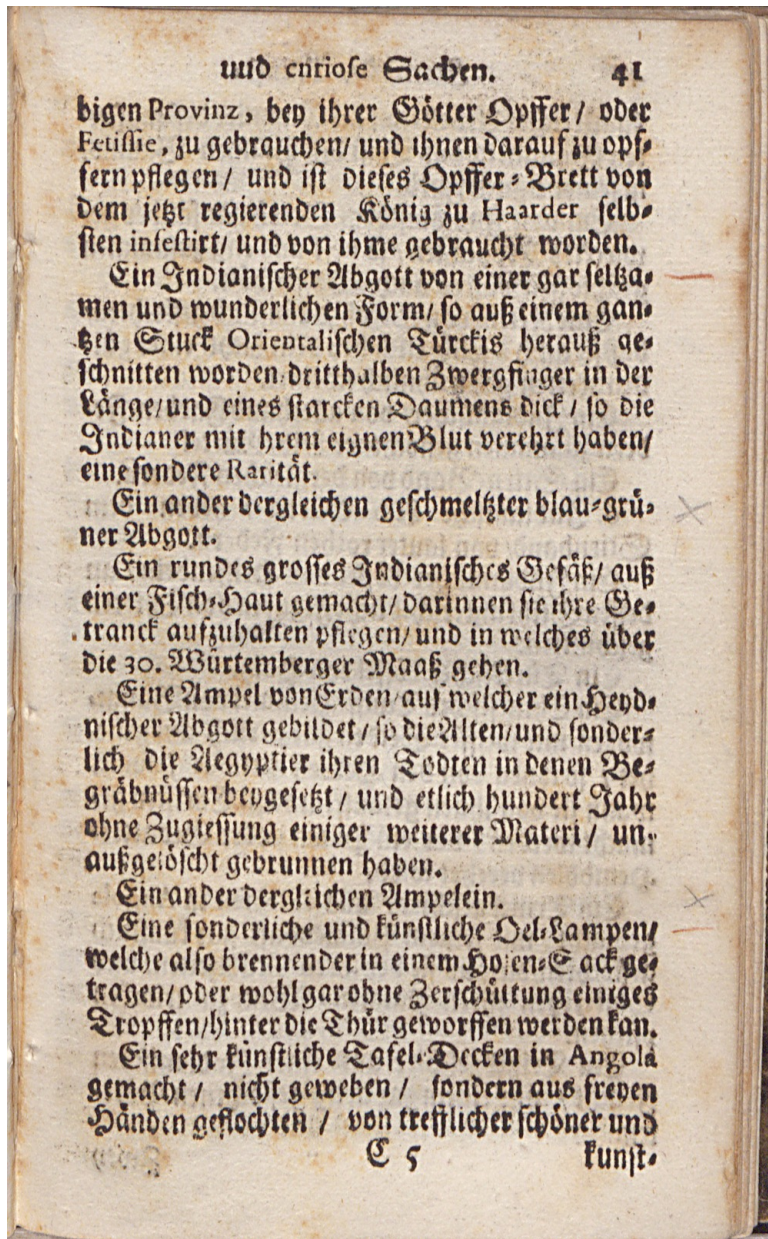 und curiose Sachen. 41
bigen Provinz, bey ihrer Götter Opffer / oder
Fetissie, zu gebrauchen / und ihnen darauf zu opf-
fern pflegen / und ist dieses Opffer-Brett von
dem jetzt regierenden König zu Haarder selb-
sten infestirt / und von ihme gebraucht worden.
Ein Indianischer Abgott von einer gar seltza-
men und wunderlichen Form / so auß einem gan-
tzen Stuck Orientalischen Türckis herauß ge-
schnitten worden / dritthalben Zwergfinger in der
Länge / und eines starcken Daumens dick / so die
Indianer mit hrem eignen Blut verehrt haben /
eine sondere Rarität.
Ein ander dergleichen geschmeltzter blau-grü-
ner Abgott.
Ein rundes grosses Indianisches Gefäß / auß
einer Fisch-Haut gemacht / darinnen sie ihre Ge-
tranck aufzuhalten pflegen / und in welches über
die 30. Würtemberger Maaß gehen.
Eine Ampel von Erden / auf welcher ein Heyd-
nischer Abgott gebildet / so die Alten / und sonder-
lich die Aegyptier ihren Todten in denen Be-
gräbnüssen beygesetzt / und etlich hundert Jahr
ohne Zugiessung einiger weiterer Materi / un-
außgelöscht gebrunnen haben.
Ein ander dergleichen Ampelein.
Eine sonderliche und künstliche Oel-Lampen /
welche also brennender in einem Hosen-Sack ge-
tragen / oder wohl gar ohne Zerschüttung einiges
Tropffen / hinter die Thür geworffen werden kan.
Ein sehr künstliche Tafel-Decken in Angola
gemacht / nicht geweben / sondern aus freyen
Händen geflochten / von trefflicher schöner und
C 5 kunst-